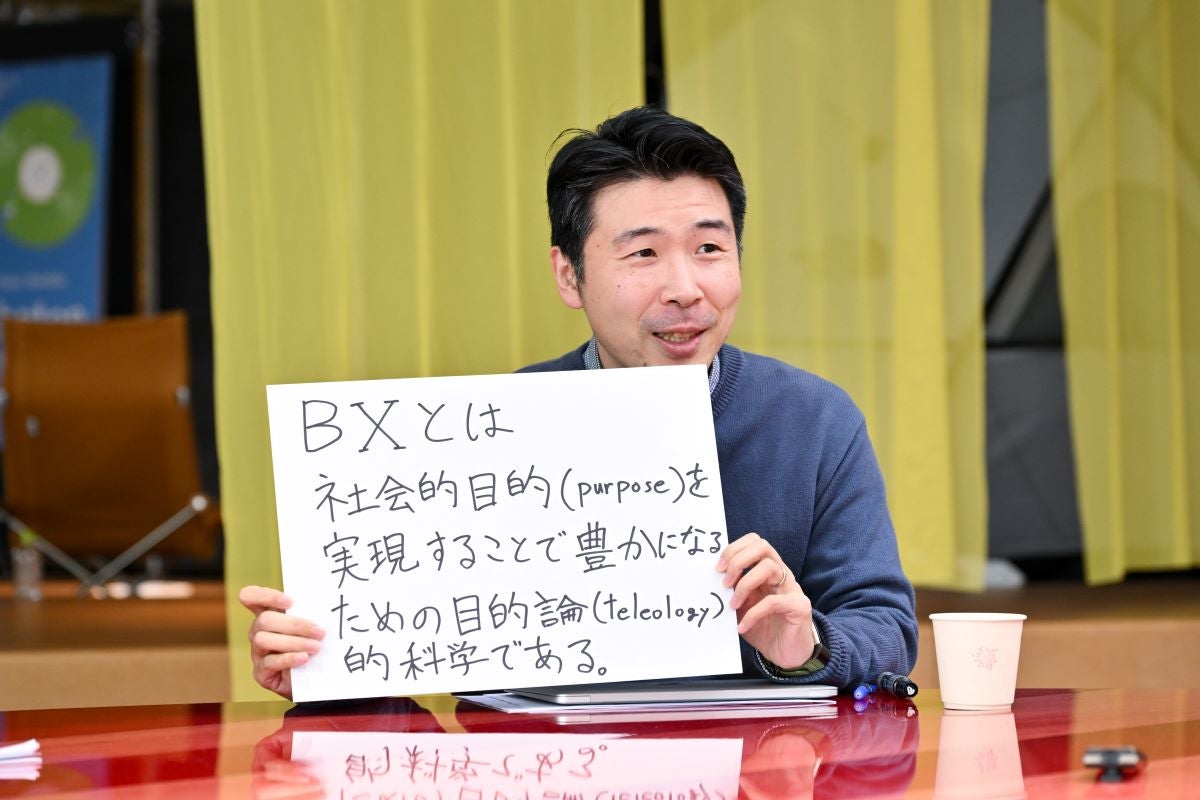 BXとは
社会的目的(purpose)を
実現することで豊かになる
ための目的論(teleology)
的科学である。